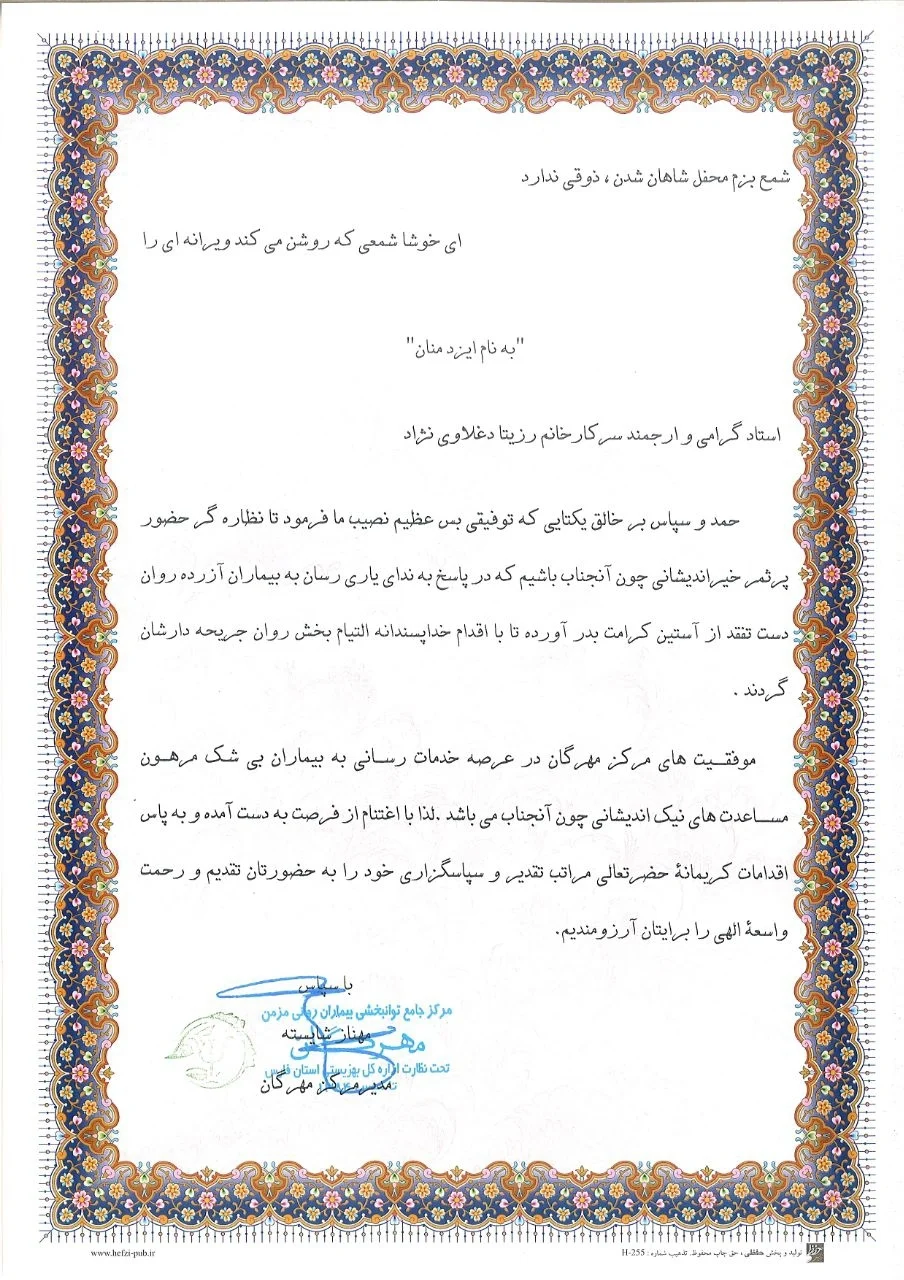 شمع بزم محفل شاهان شدن ، ذوقی ندارد
ای خوشا شمعی که روشن می کند ویرانه ای را
"به نام ایزد منان"
استاد گرامی و ارجمند سرکارخانم رزیتا دغلاوی نژاد
حمد و سپاس بر خالق یکتایی که توفیقی بس عظیم نصیب ما فرمود تا نظاره گر حضور
پرثمر خیراندیشانی چون آنجناب باشیم که در پاسخ به ندای یاری رسان به بیماران آزرده روان
دست تفقد از آستین کرامت بدر آورده تا با اقدام خداپسندانه التیام بخش روان جریحه دارشان
گردند .
موفقیت های مرکز مهرگان در عرصه خدمات رسانی به بیماران بی شک مرهون
مساعدت های نیک اندیشانی چون آنجناب می باشد .لذا با اغتنام از فرصت به دست آمده و به پاس
اقدامات کریمانهٔ حضرتعالی مراتب تقدیر و سپاسگزاری خود را به حضورتان تقدیم و رحمت
واسعهٔ الهی را برایتان آرزومندیم.
با سپاس
مرکز جامع توانبخشی بیماران روانی مزمن
مهناز شایسته
تحت نظارت اداره کل بهزیستی استان فارس
مدیر مرکز مهرگان
تولید و پخش حفظی ، حق چاپ محفوظ. تذهیب شماره : H-255
www.hefzi-pub.ir